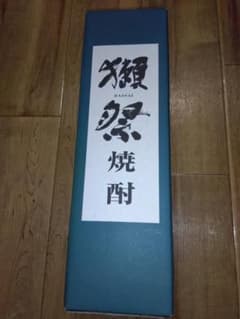 獺祭
DASSAI
焼酎